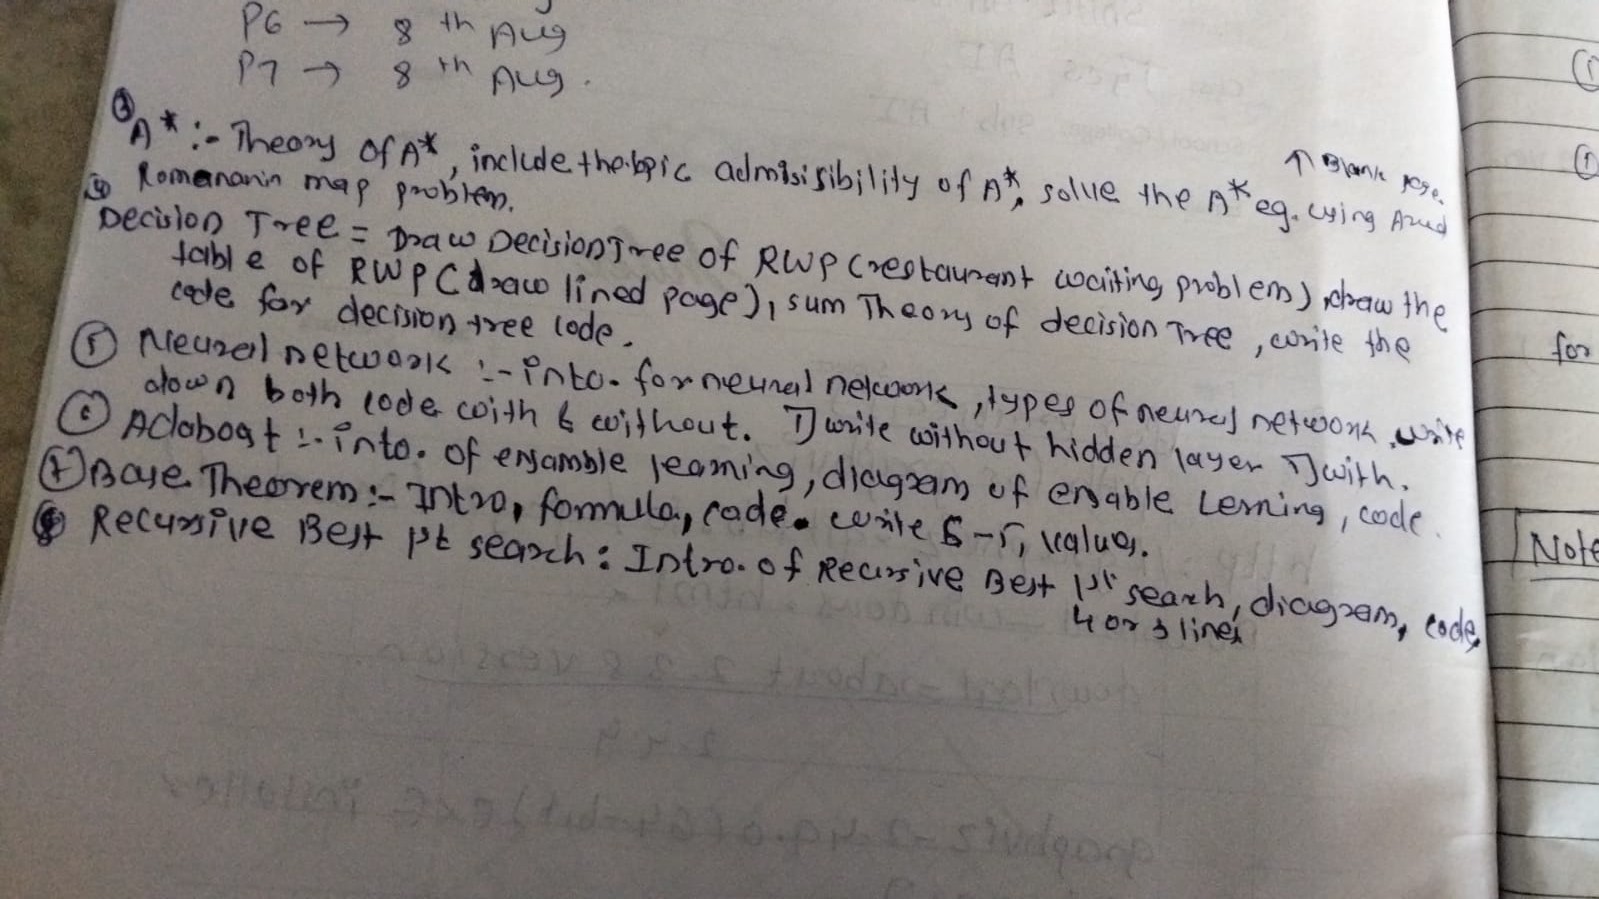 P6 → 8 th Aug
P7 → 8 th Aug.
③ A* :- Theory of A*, include the topic admisisibility of A*, solve the A* eg. using Arad
↑ Blank page.
Romananin map problem.
④ Decision Tree = Draw Decision Tree of RWP (restaurant waiting problem) draw the
table of RWP (draw lined page), sum Theory of decision Tree, write the
code for decision tree code.
⑤ Neural network :- into. for neural network, types of neural network, write
down both code with & without. I) write without hidden layer II) with.
⑥ Adaboat :- into. of ensamble learning, diagram of ensable Lerning, code.
⑦ Baye Theorem :- Intro, formula, code. write values.
⑧ Recursive Best 1st search : Intro. of Recursive Best 1st search, diagram, code,
4 or 3 lines
for
Note